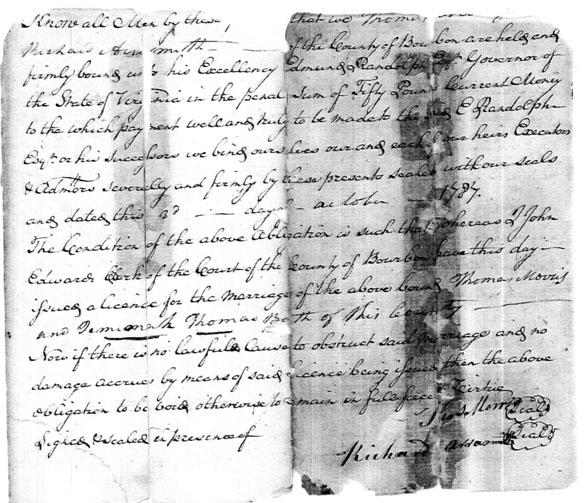 Know all Men by these, that we Thomas
Richard smith — of the County of Bourbon are held and
firmly bound unto his Excellency Edmund Randolph Esqr. Governor of
the State of Virginia in the penal Sum of Fifty Pounds Current Money
to the which payment well and truly to be made to the said E Randolph
Esqr. or his successors we bind ourselves our and each of our heirs Executors
& Admors severally and firmly by these presents sealed with our seals
and dated this 3d — day of — 1787.
The Condition of the above Obligation is such that whereas I John
Edwards Clerk of the Court of the County of Bourbon have this day —
issued a licence for the Marriage of the above bound Thomas Morris
and Jemimah Thomas Both of this County —
Now if there is no lawfull Cause to obstruct said Marriage and no
damage accrues by means of said Licence being issued then the above
obligation to be void otherwise to remain in full force & Virtue
Signed & sealed in presence of
Thos Morris Seal
Richard Seal